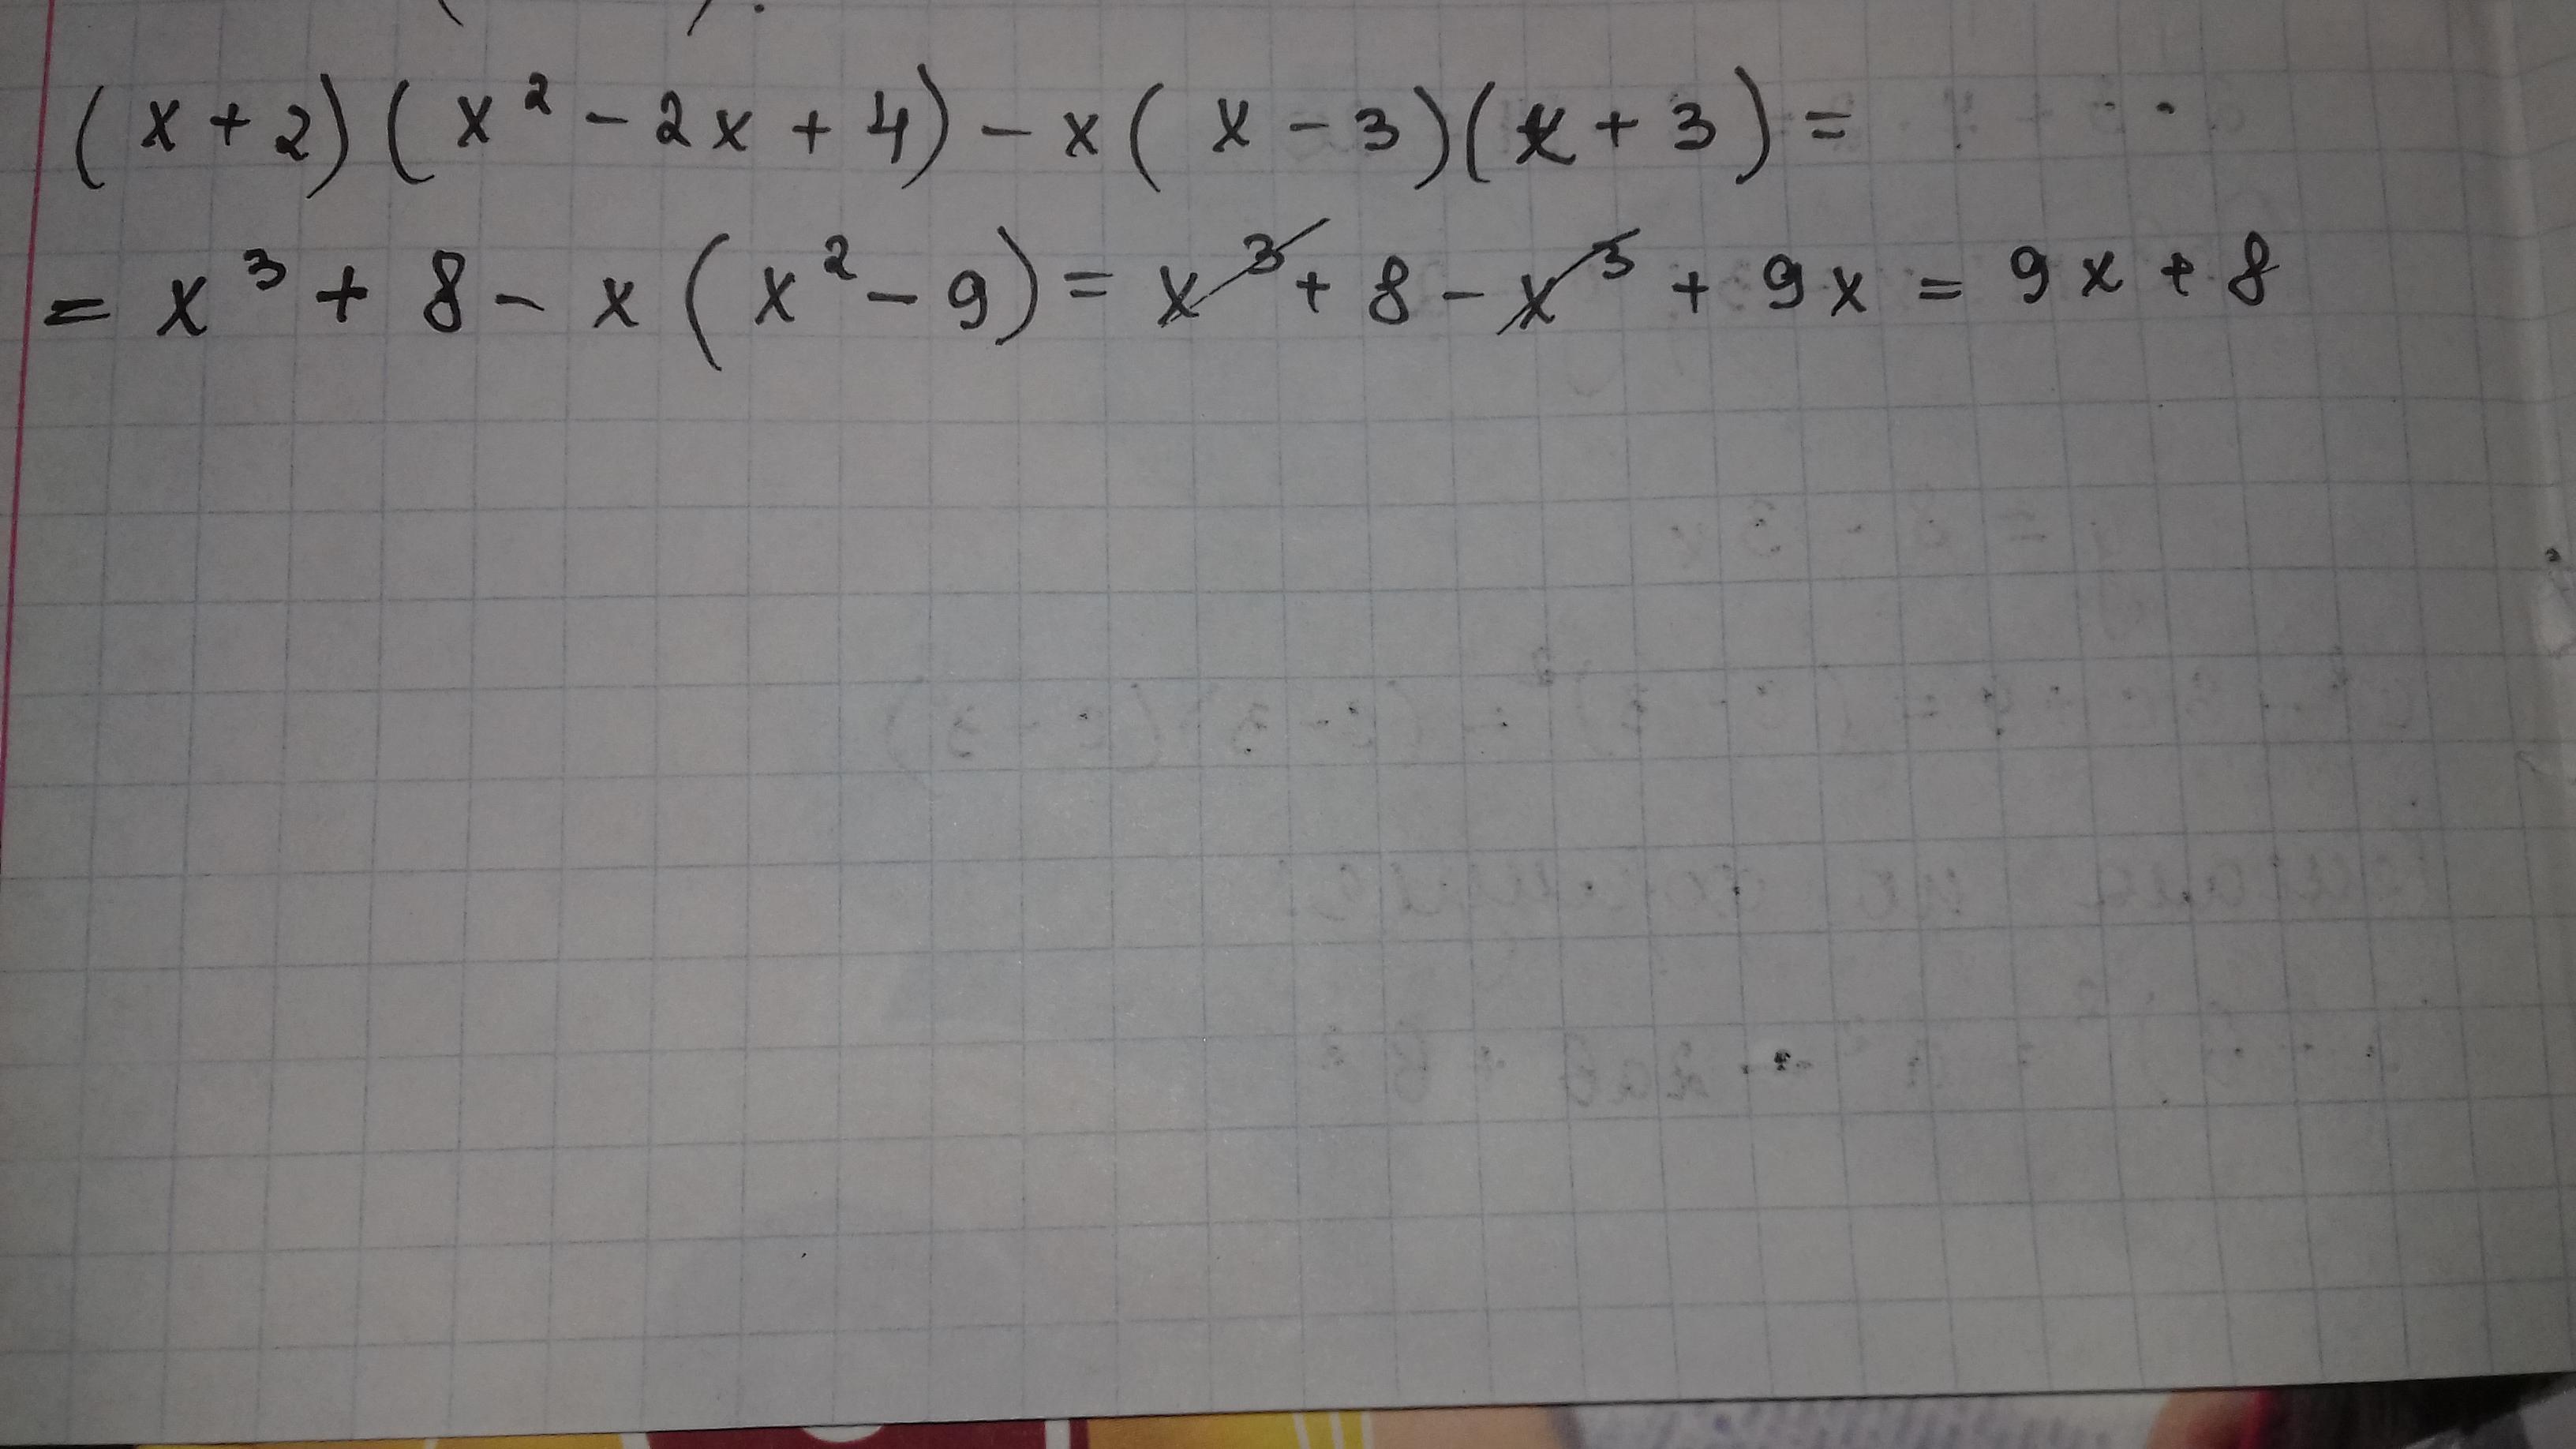 (x+2)(x²-2x+4)-x(x-3)(x+3)=
=x³+8-x(x²-9)=x³+8-x³+9x=9x+8